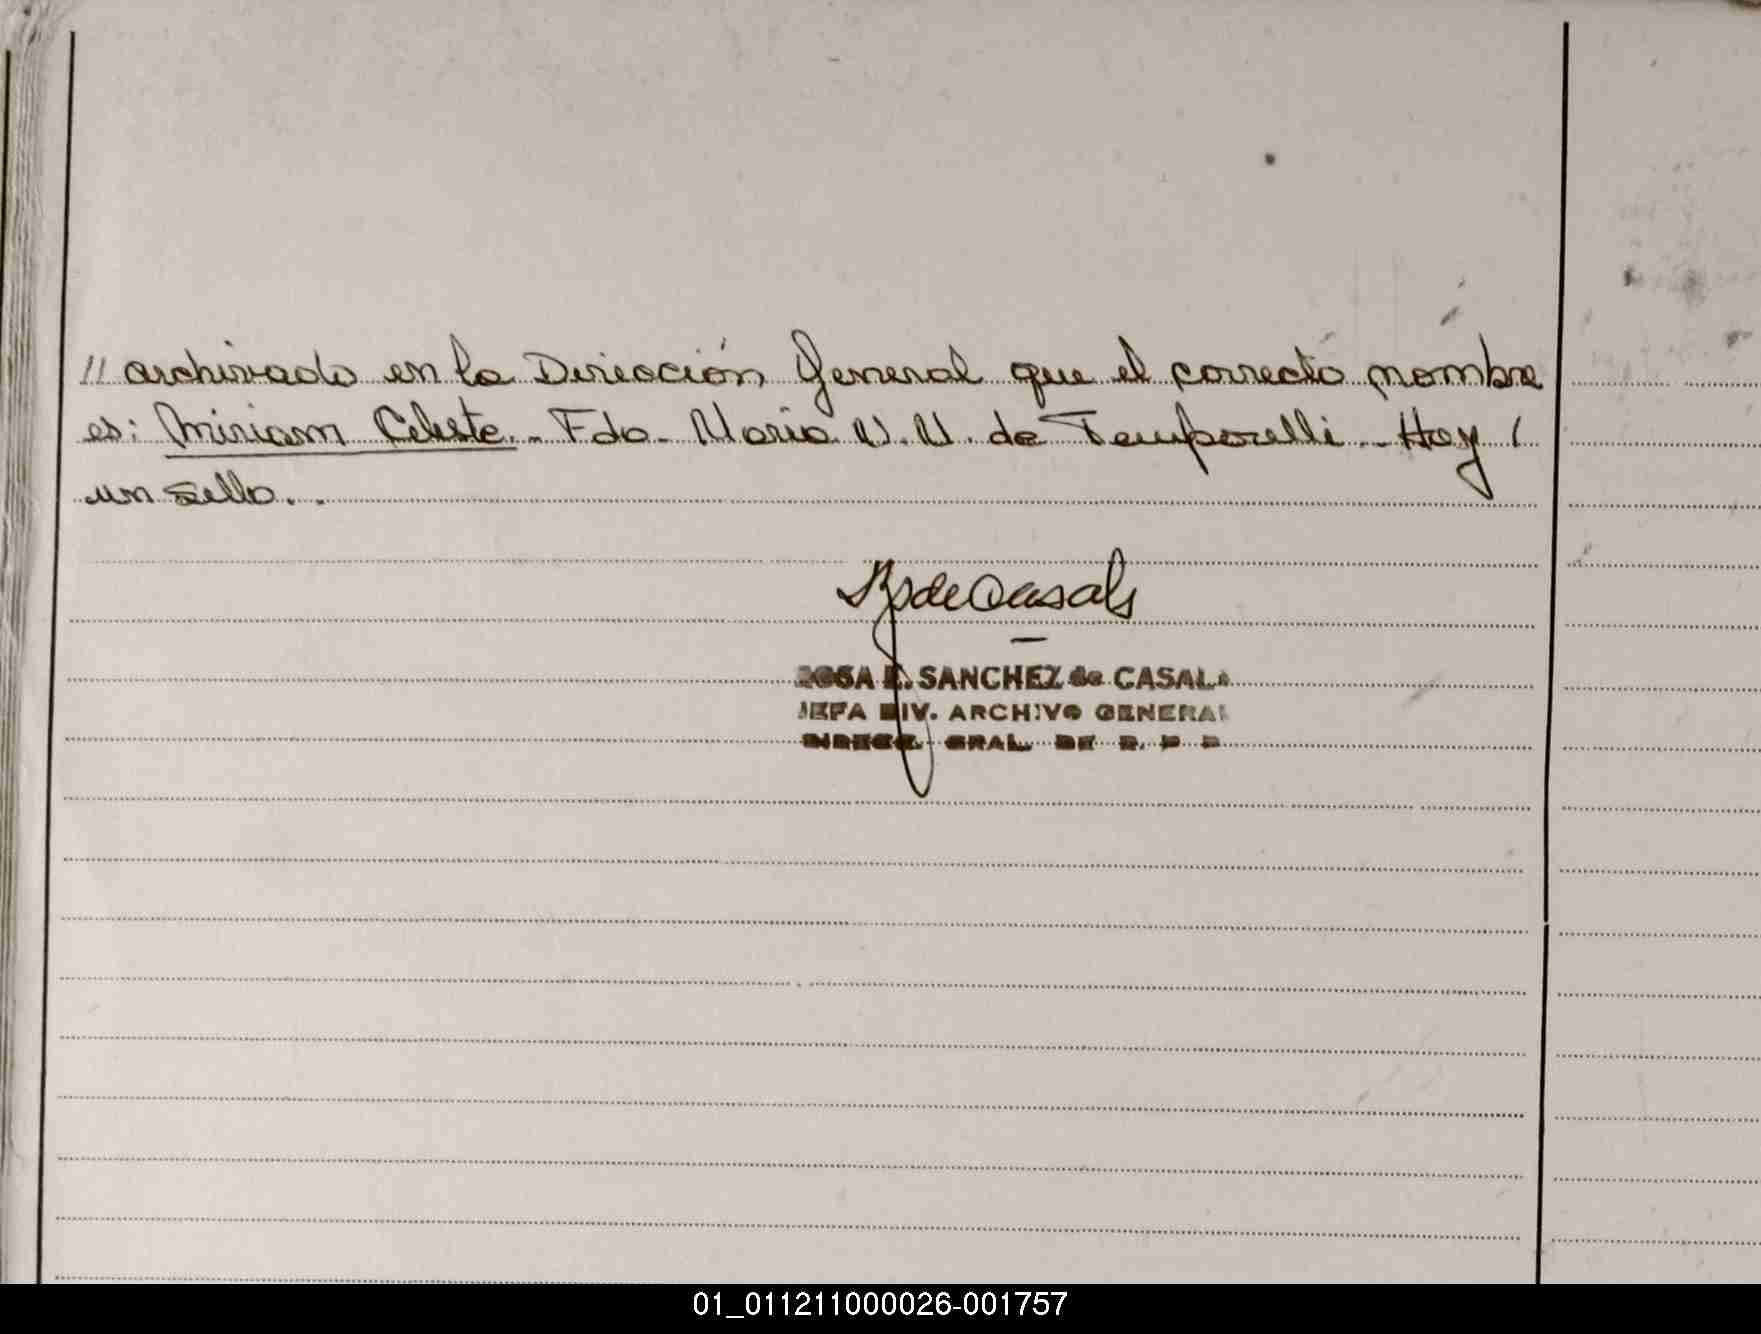 // archivado en la Dirección General que el correcto nombre
es: Miriam Celeste.- Fdo. María N. N. de Temporelli.- Hay /
un sello.-
RSdeCasals
ROSA E. SANCHEZ de CASALS
JEFA DIV. ARCHIVO GENERAL
DIRECC. GRAL. DE R. P. P
01_011211000026-001757